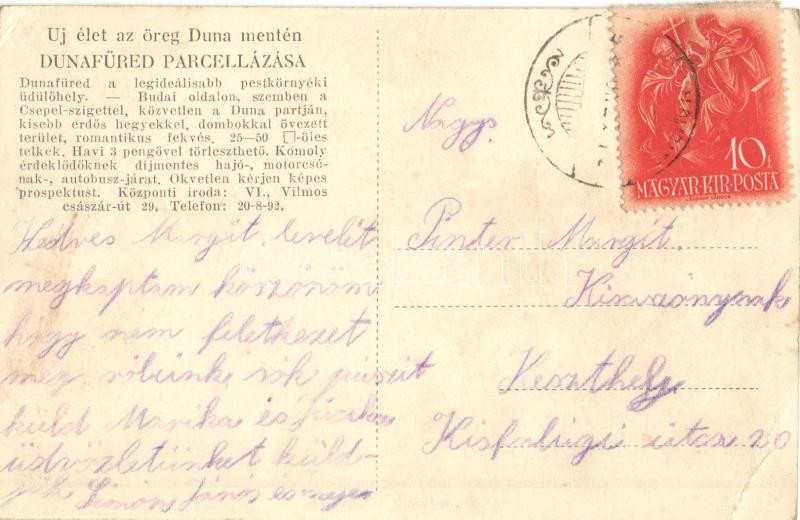 Uj élet az öreg Duna mentén
DUNAFÜRED PARCELLÁZÁSA
Dunafüred a legideálisabb pestkörnyéki
üdülőhely. — Budai oldalon, szemben a
Csepel-szigettel, közvetlen a Duna partján,
kisebb erdős hegyekkel, dombokkal övezett
terület, romantikus fekvés. 25—50 □-öles
telkek. Havi 3 pengővel törleszthető. Komoly
érdeklődőknek díjmentes hajó-, motorcsó-
nak-, autobusz-járat. Okvetlen kérjen képes
prospektust. Központi iroda: VI., Vilmos
császár-út 29. Telefon: 20-8-92.
Kedves Margit. levelét
megkaptam köszönöm
hogy nem feletkezet
meg rólunk sok puszit
küld Marika és
üdvözletünket küld-
jük Simon János és neje
Nagys.
Pinter Margit.
Kisasszonynak
Keszthely
Kisfaludi utca 20
10 f
MAGYAR·KIR·POSTA